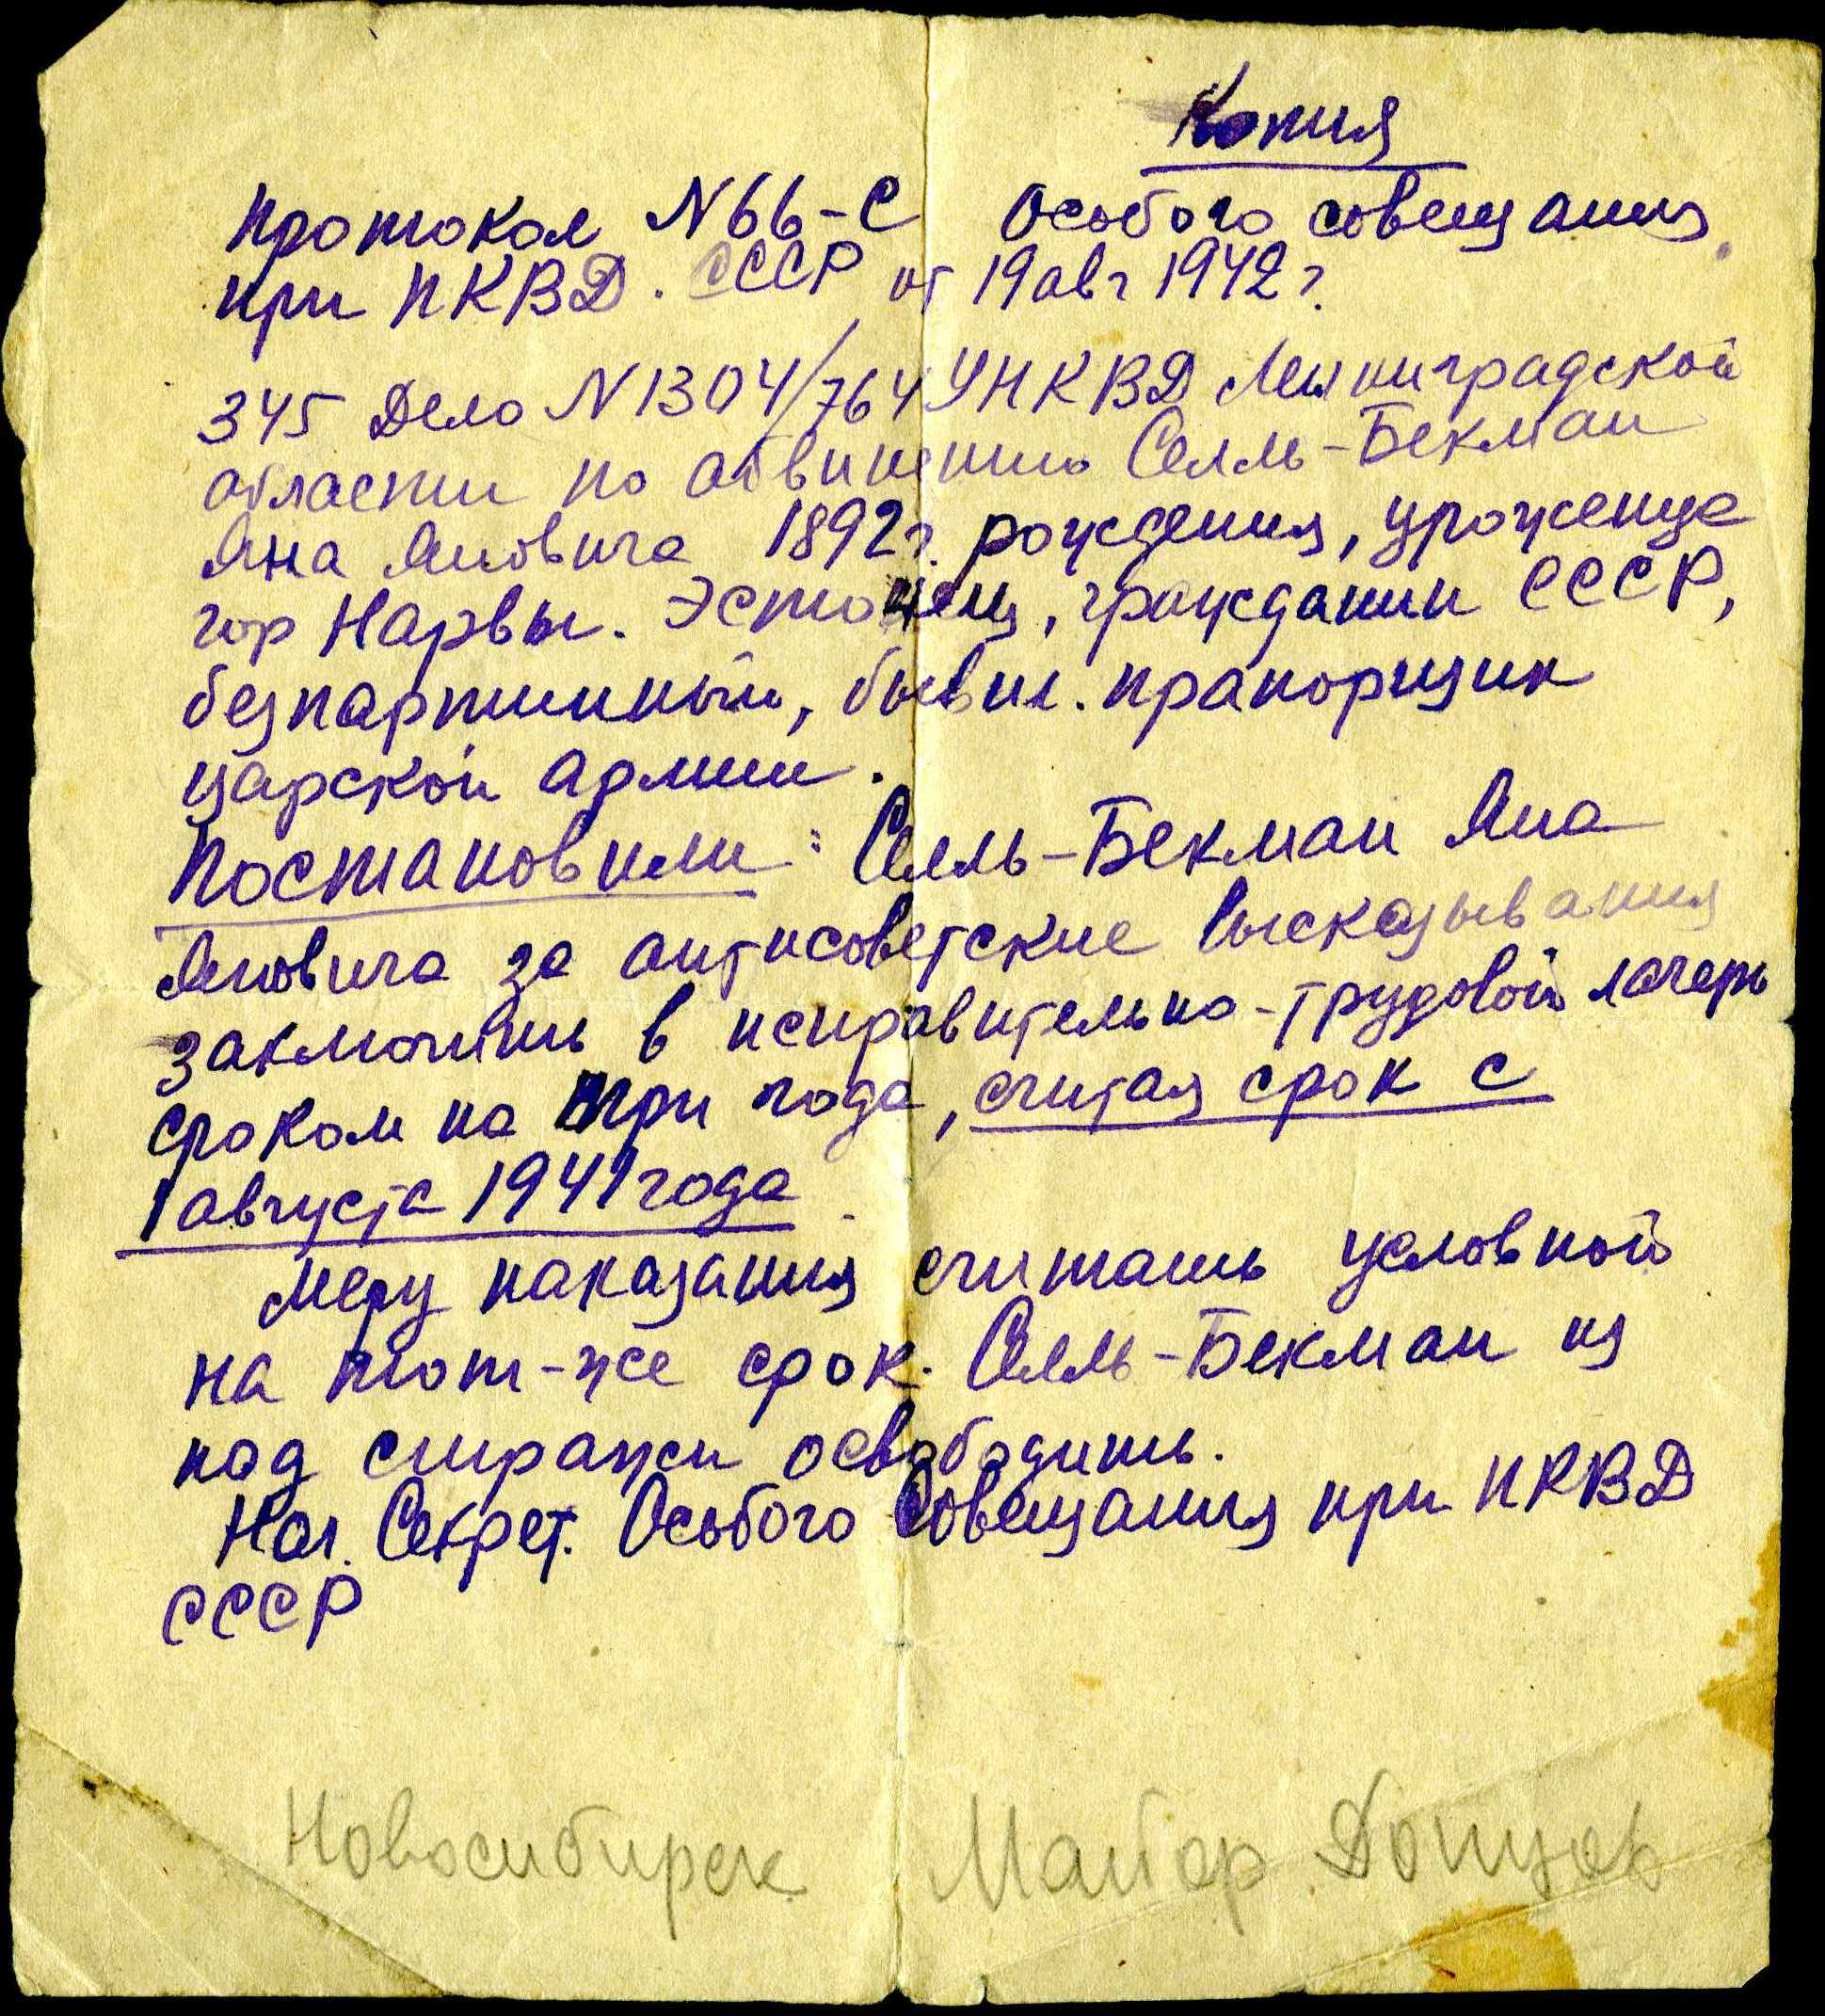 Копия
Протокол N 66-С Особого совещания
при НКВД. СССР от 19 авг 1942 г.
345 Дело N 1304/764 УНКВД Ленинградской
области по обвинению Селль-Бекман
Яна Яновича 1892 г. рождения, уроженца
гор Нарвы. Эстонец, гражданин СССР,
безпартийный, бывш. прапорщик
царской армии.
Постановили: Селль-Бекман Яна
Яновича за антисоветские высказывания
заключить в исправительно-трудовой лагерь
сроком на три года, считая срок с
1 августа 1941 года
Меру наказания считать условной
на тот-же срок. Селль-Бекман из
под стражи освободить.
Нач. Секрет. Особого Совещания при НКВД
СССР
Новосибирск Майор Донцов